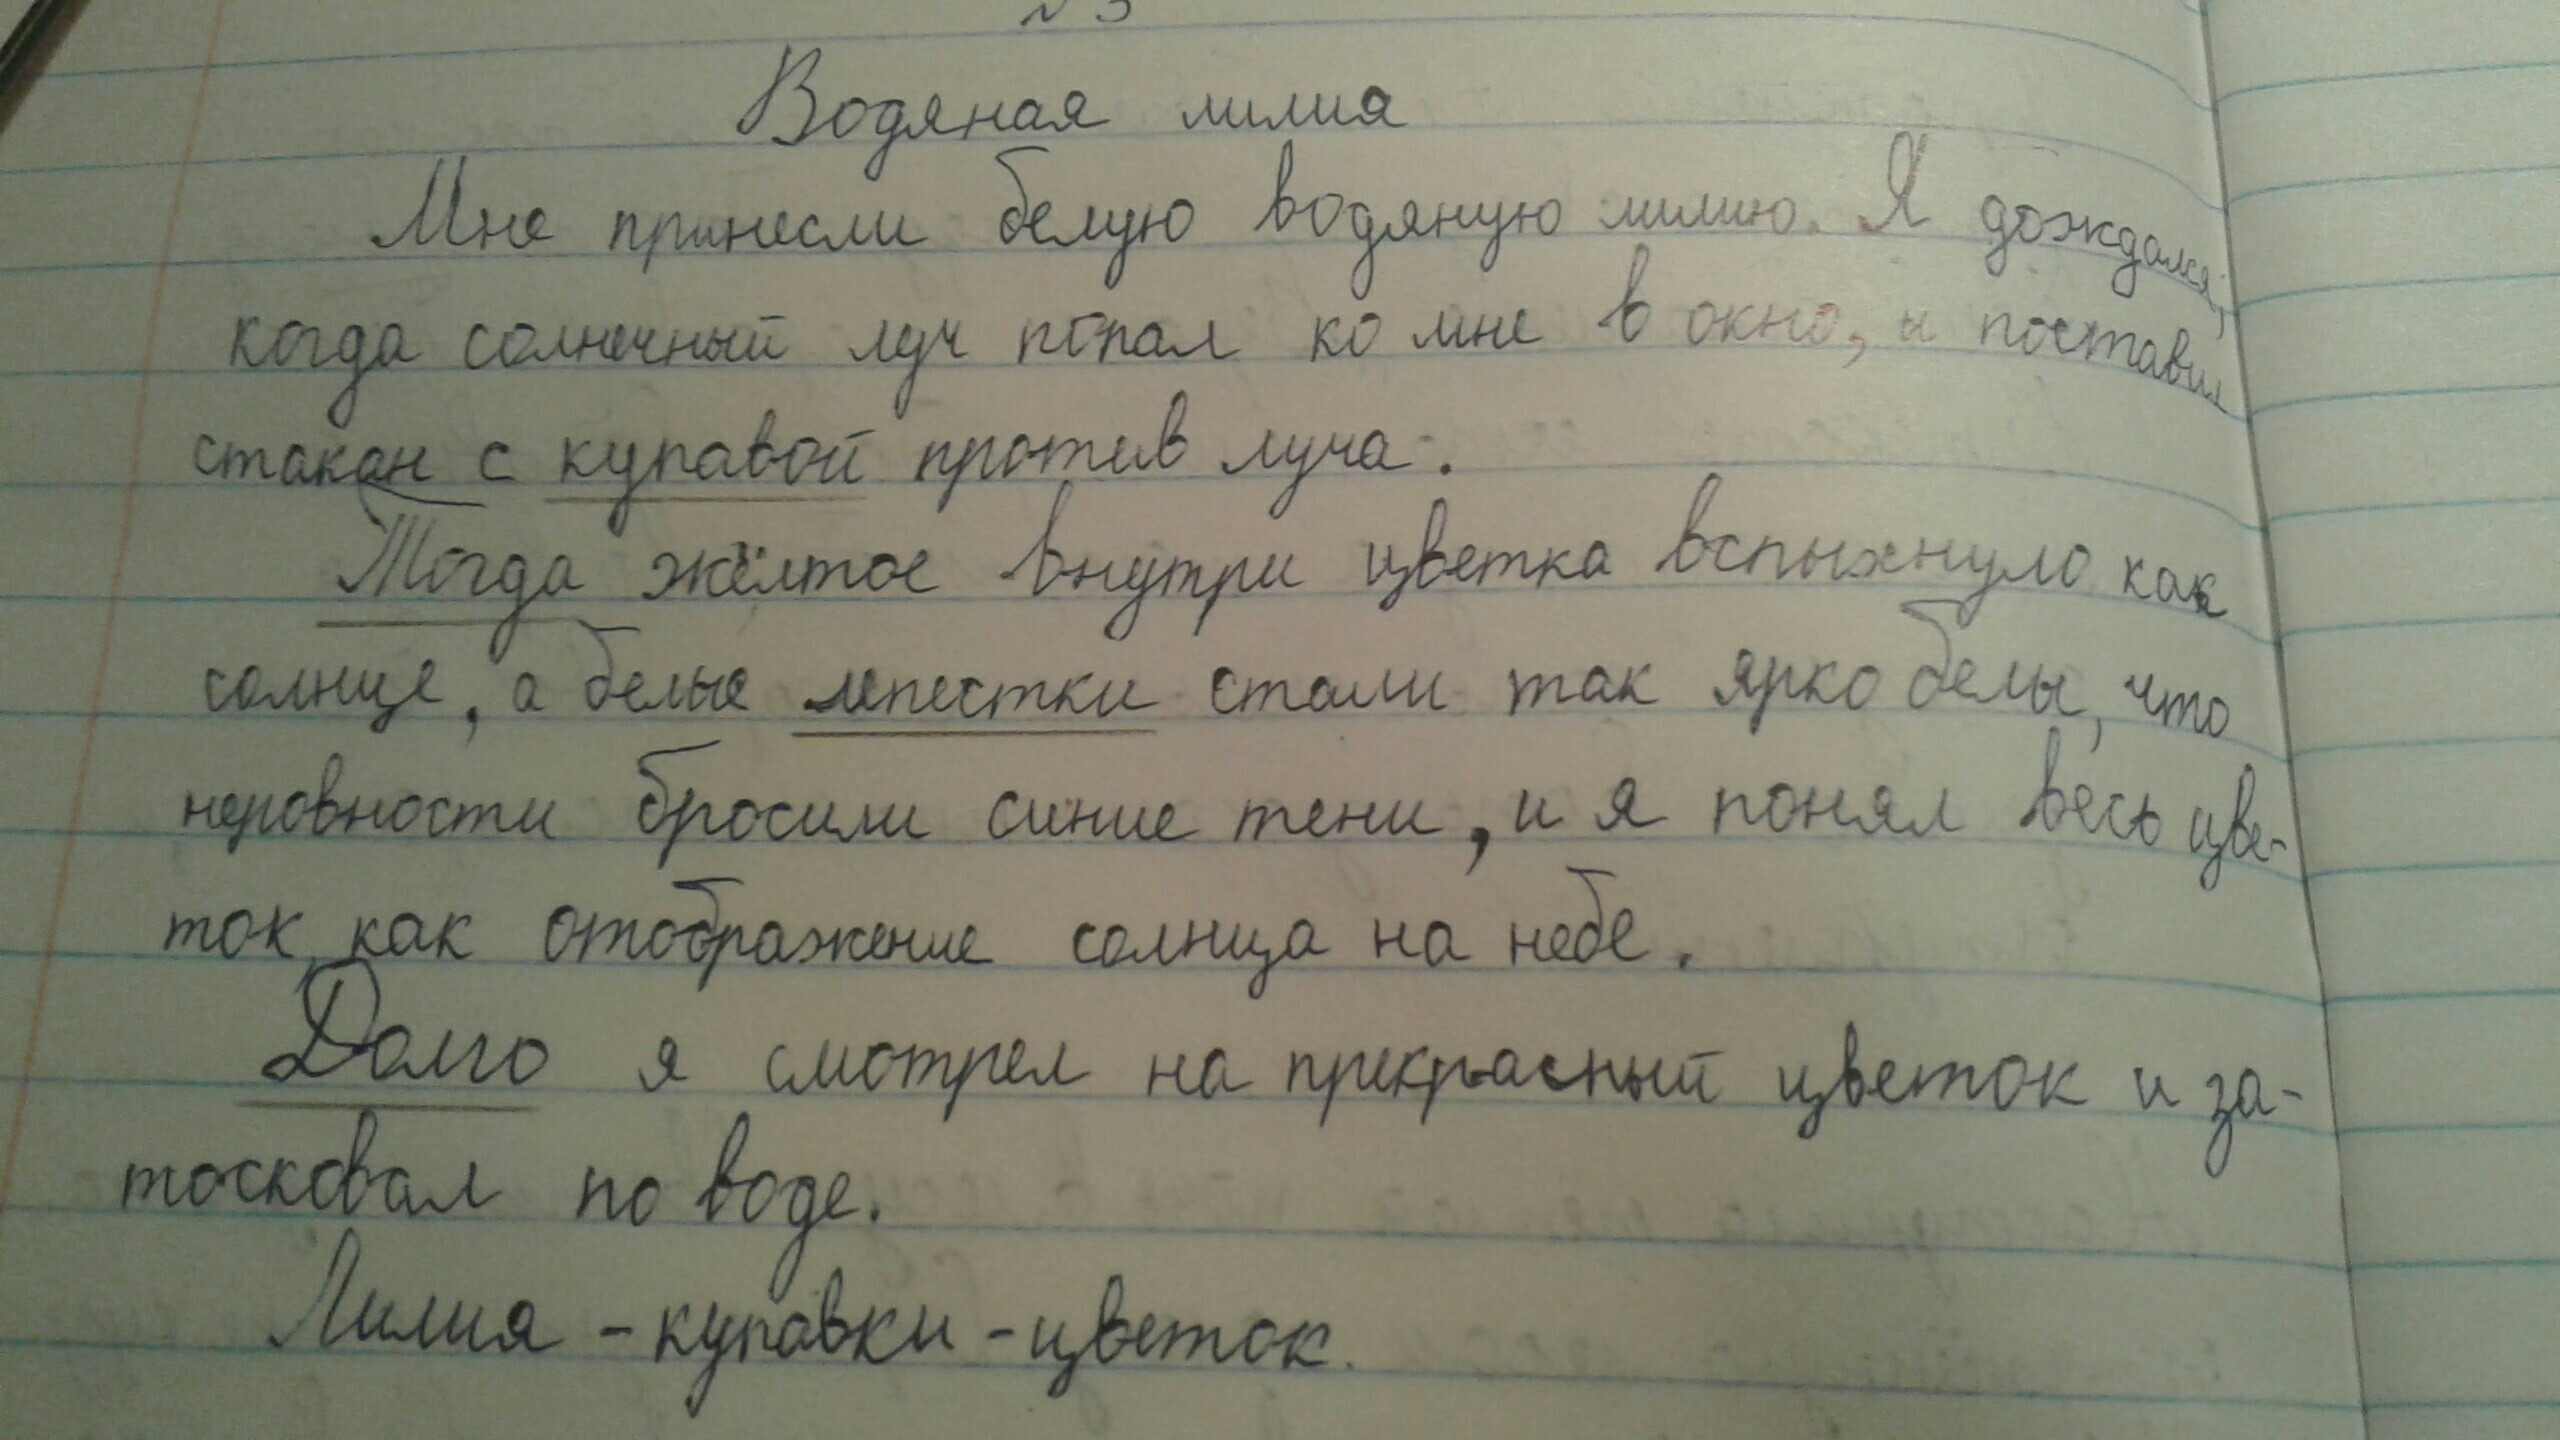 №3
Водяная лилия
Мне принесли белую водяную лилию. Я дождался,
когда солнечный луч попал ко мне в окно, и поставил
стакан с купавой против луча.
Тогда жёлтое внутри цветка вспыхнуло как
солнце, а белые лепестки стали так ярко белы, что
неровности бросили синие тени, и я понял весь цве-
ток как отображение солнца на небе.
Долго я смотрел на прекрасный цветок и за-
тосковал по воде.
Лилия - купавки - цветок.